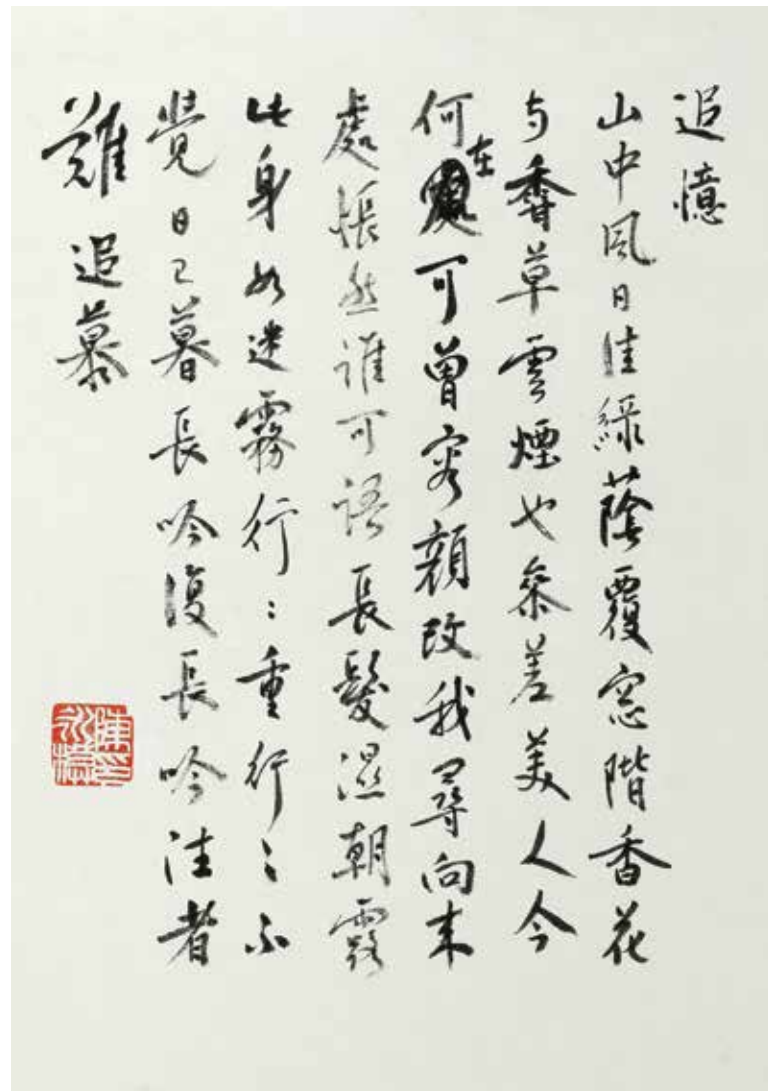 追憶
山中風日佳綠蔭覆窓階香花
与香草雲煙也參差美人今
何在可曾容顏改我尋向来
處悵然誰可語長髮濕朝露
此身如迷霧行〻重行〻不
覺日已暮長吟復長吟往者
難追慕
陳印永